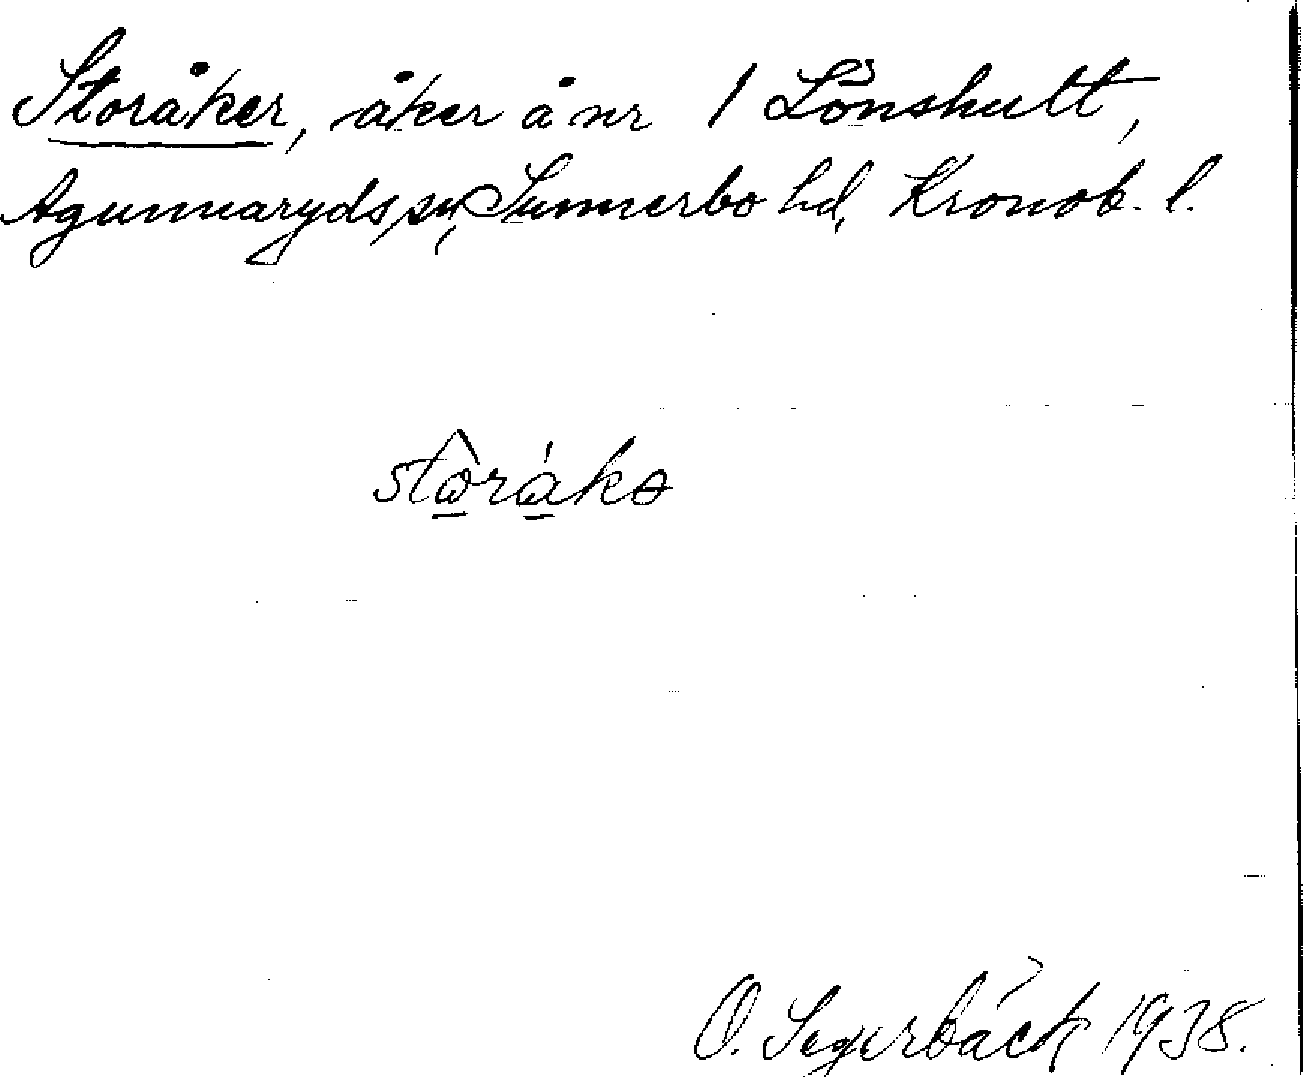 Storåker, åker å nr 1 Lönshult,
Agunnaryds sn, Sunnerbo hd, Kronob. l.
stω̂ràkə
O. Segerbäck 1938.